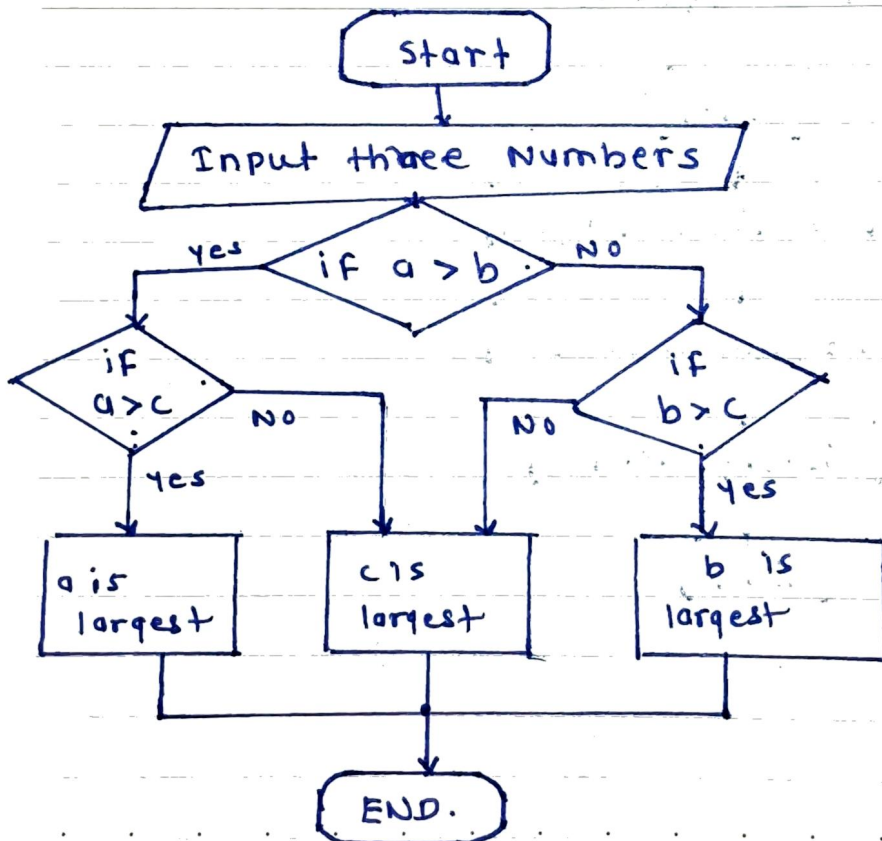 Start
Input three Numbers
yes
if a > b
NO
if
a>c
NO
yes
if
b>c
NO
yes
a is
largest
c is
largest
b is
largest
END.